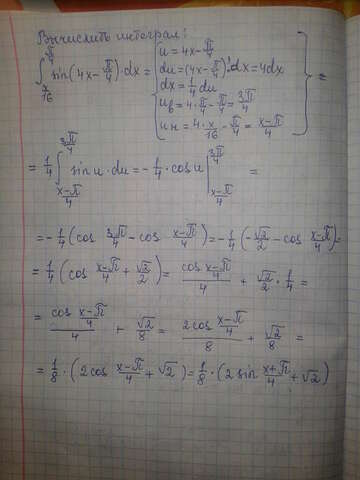 Вычислить интеграл:
∫_{x/16}^{π/4} sin(4x - π/4)·dx = { u = 4x - π/4
du = (4x - π/4)'·dx = 4dx
dx = 1/4 du
uв = 4·π/4 - π/4 = 3π/4
uн = 4·x/16 - π/4 = (x-π)/4 } =
= 1/4 ∫_{(x-π)/4}^{3π/4} sin u · du = - 1/4 · cos u |_{(x-π)/4}^{3π/4} =
= - 1/4 (cos 3π/4 - cos (x-π)/4) = - 1/4 (- √2/2 - cos (x-π)/4) =
= 1/4 (cos (x-π)/4 + √2/2) = (cos (x-π)/4)/4 + √2/2 · 1/4 =
= (cos (x-π)/4)/4 + √2/8 = (2cos (x-π)/4)/8 + √2/8 =
= 1/8 · (2cos (x-π)/4 + √2) = 1/8 · (2 sin (x+π)/4 + √2)